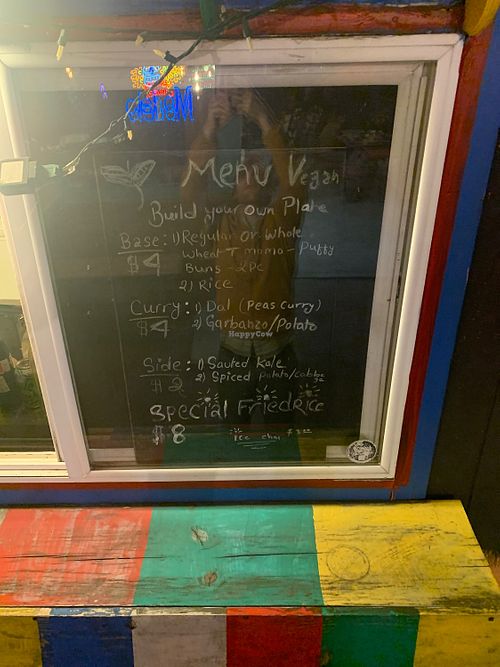 Menu Vegan
Build your Own Plate
Base: 1) Regular or Whole
$4 Wheat T momo - Puffy
Buns - 2PC
2) Rice
Curry: 1) Dal (Peas curry)
$4 2) Garbanzo/Potato
HappyCow
Side: 1) Sauted Kale
$2 2) Spiced Potato/cabbage
Special Fried Rice
$8